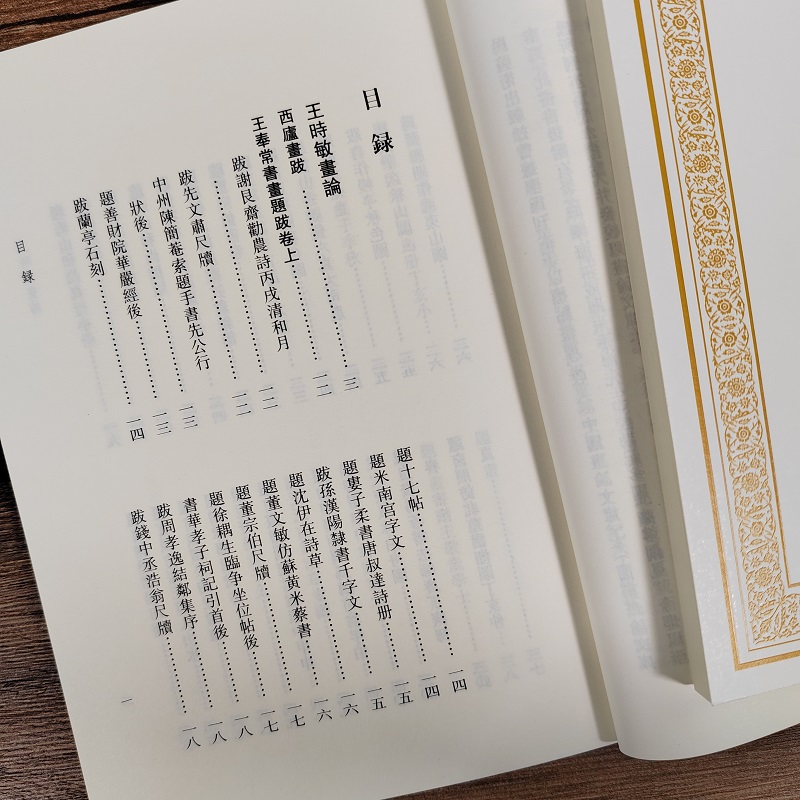 目録
王時敏畫論……三
西廬畫跋……一二
王奉常書畫題跋卷上
跋謝艮齋勸農詩丙戌清和月……一二
跋先文肅尺牘……一二
中州陳簡菴索題手書先公行
狀後……一三
題善財院華嚴經後……一三
跋蘭亭石刻……一四
題十七帖……一四
題米南宮字文……一四
題婁子柔書唐叔達詩册……一五
跋孫漢陽隸書千字文……一五
題沈伊在詩草……一六
題董文敏仿蘇黃米蔡書……一六
題董宗伯尺牘……一七
題徐耦生臨争坐位帖後……一七
書華孝子祠記引首後……一八
跋周孝逸結鄰集序……一八
跋錢中丞浩翁尺牘……一八
目録
一